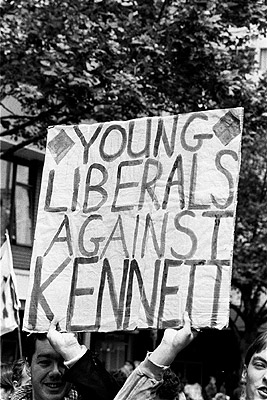 YOUNG
LIBERALS
AGAINST
KENNETT